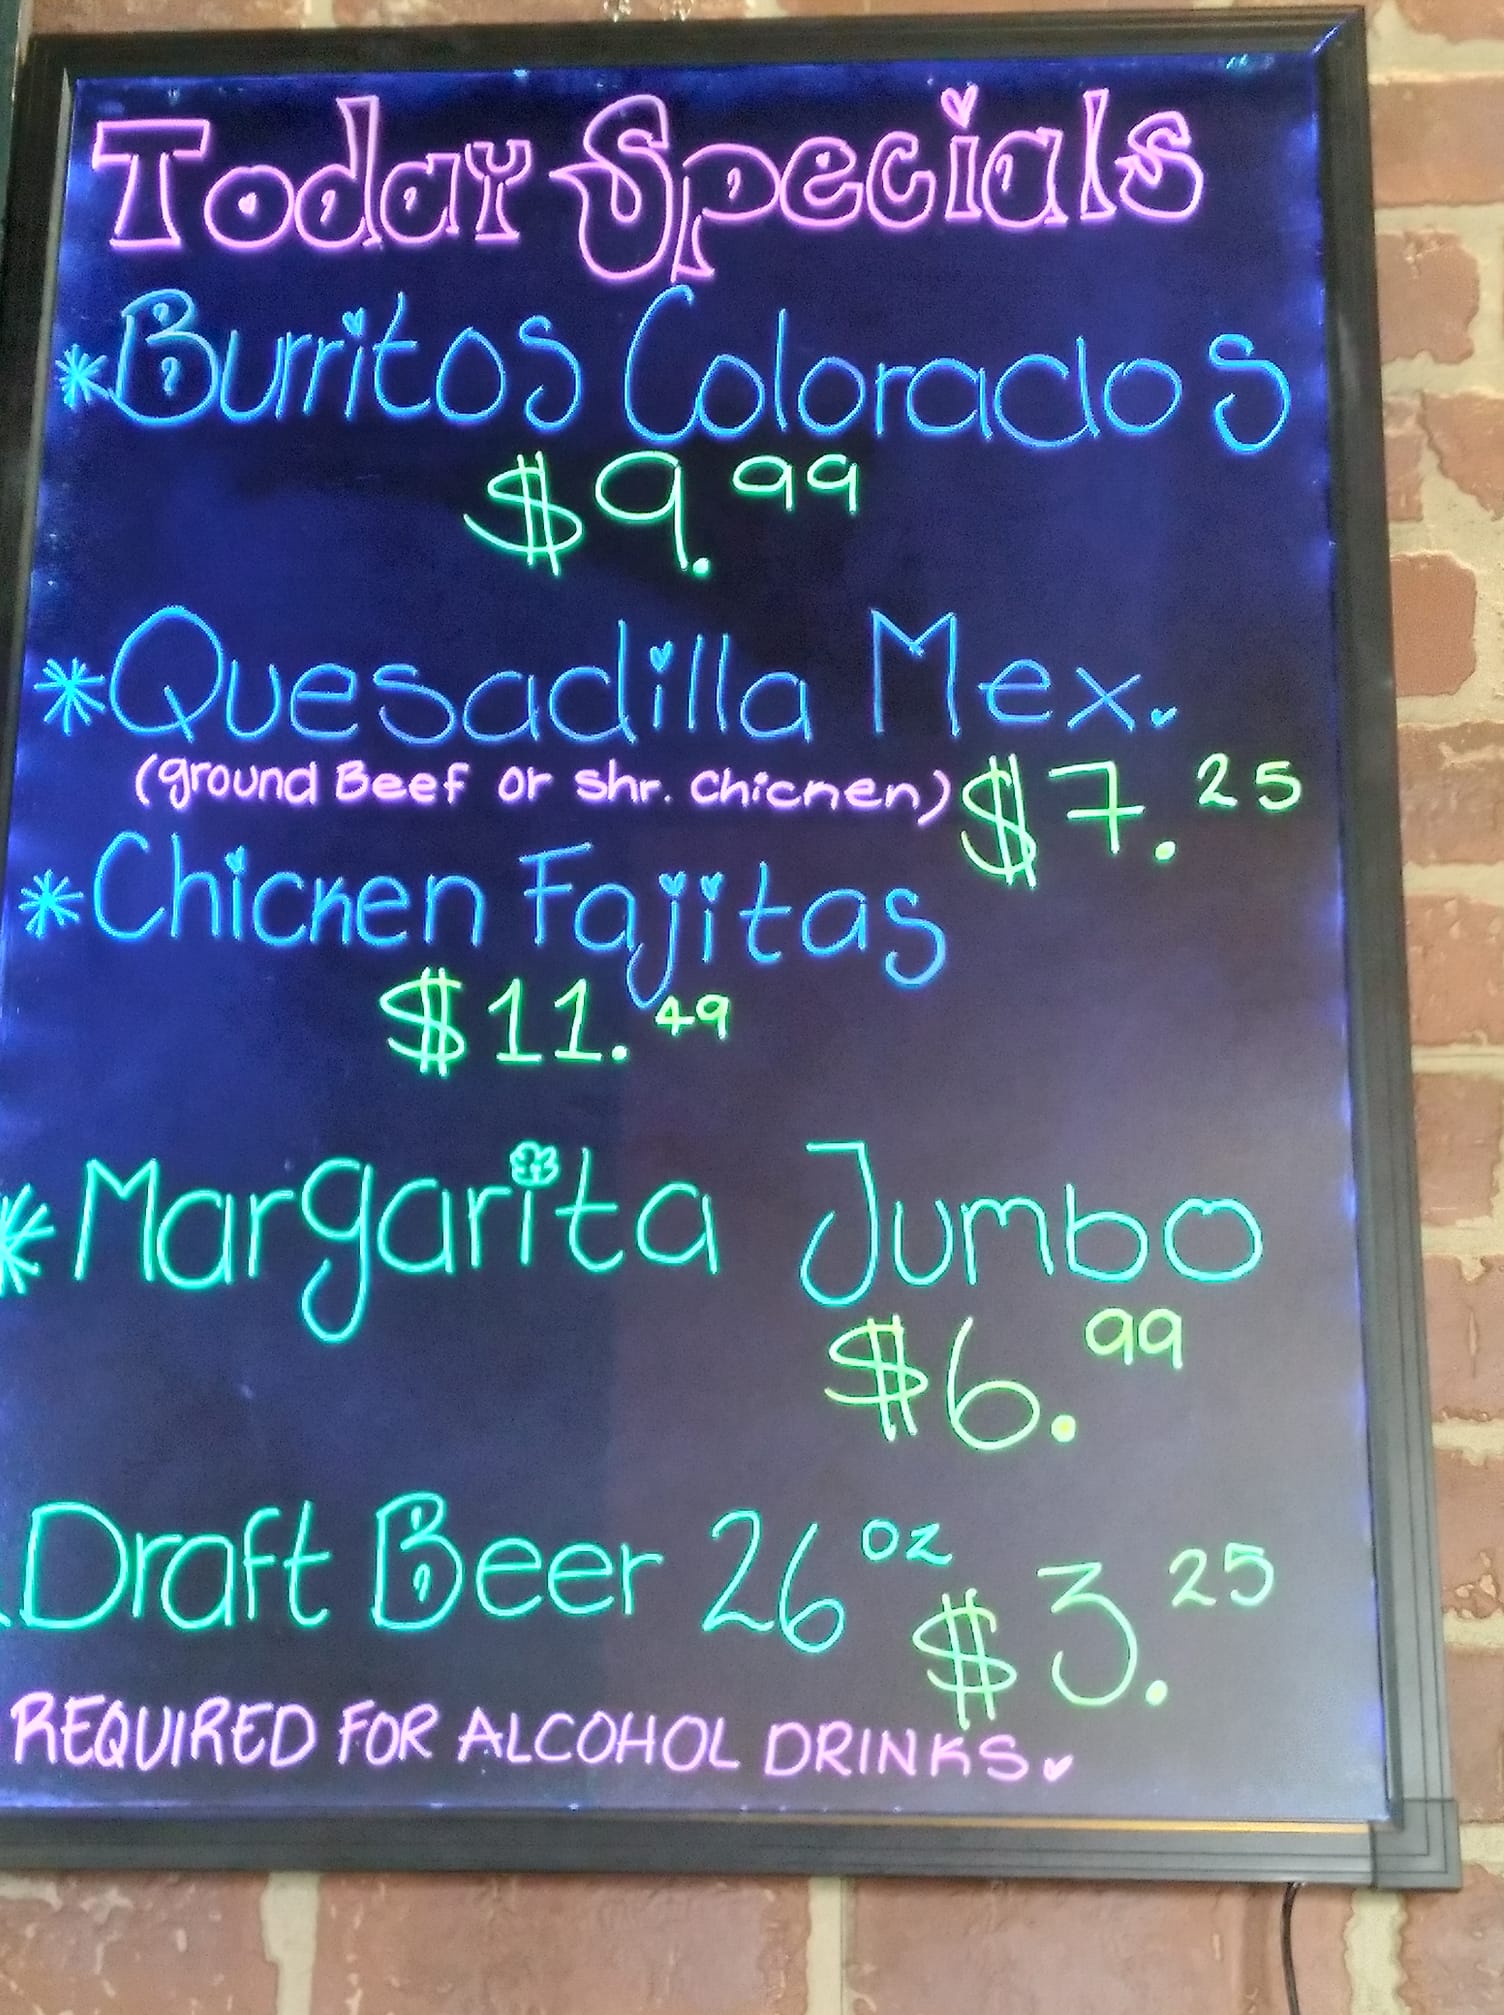 Today Specials
*Burritos Colorados
$9.99
*Quesadilla Mex.
(ground Beef or Shr. Chicken) $7.25
*Chicken Fajitas
$11.49
*Margarita Jumbo
$6.99
Draft Beer 26 oz $3.25
REQUIRED FOR ALCOHOL DRINKS.